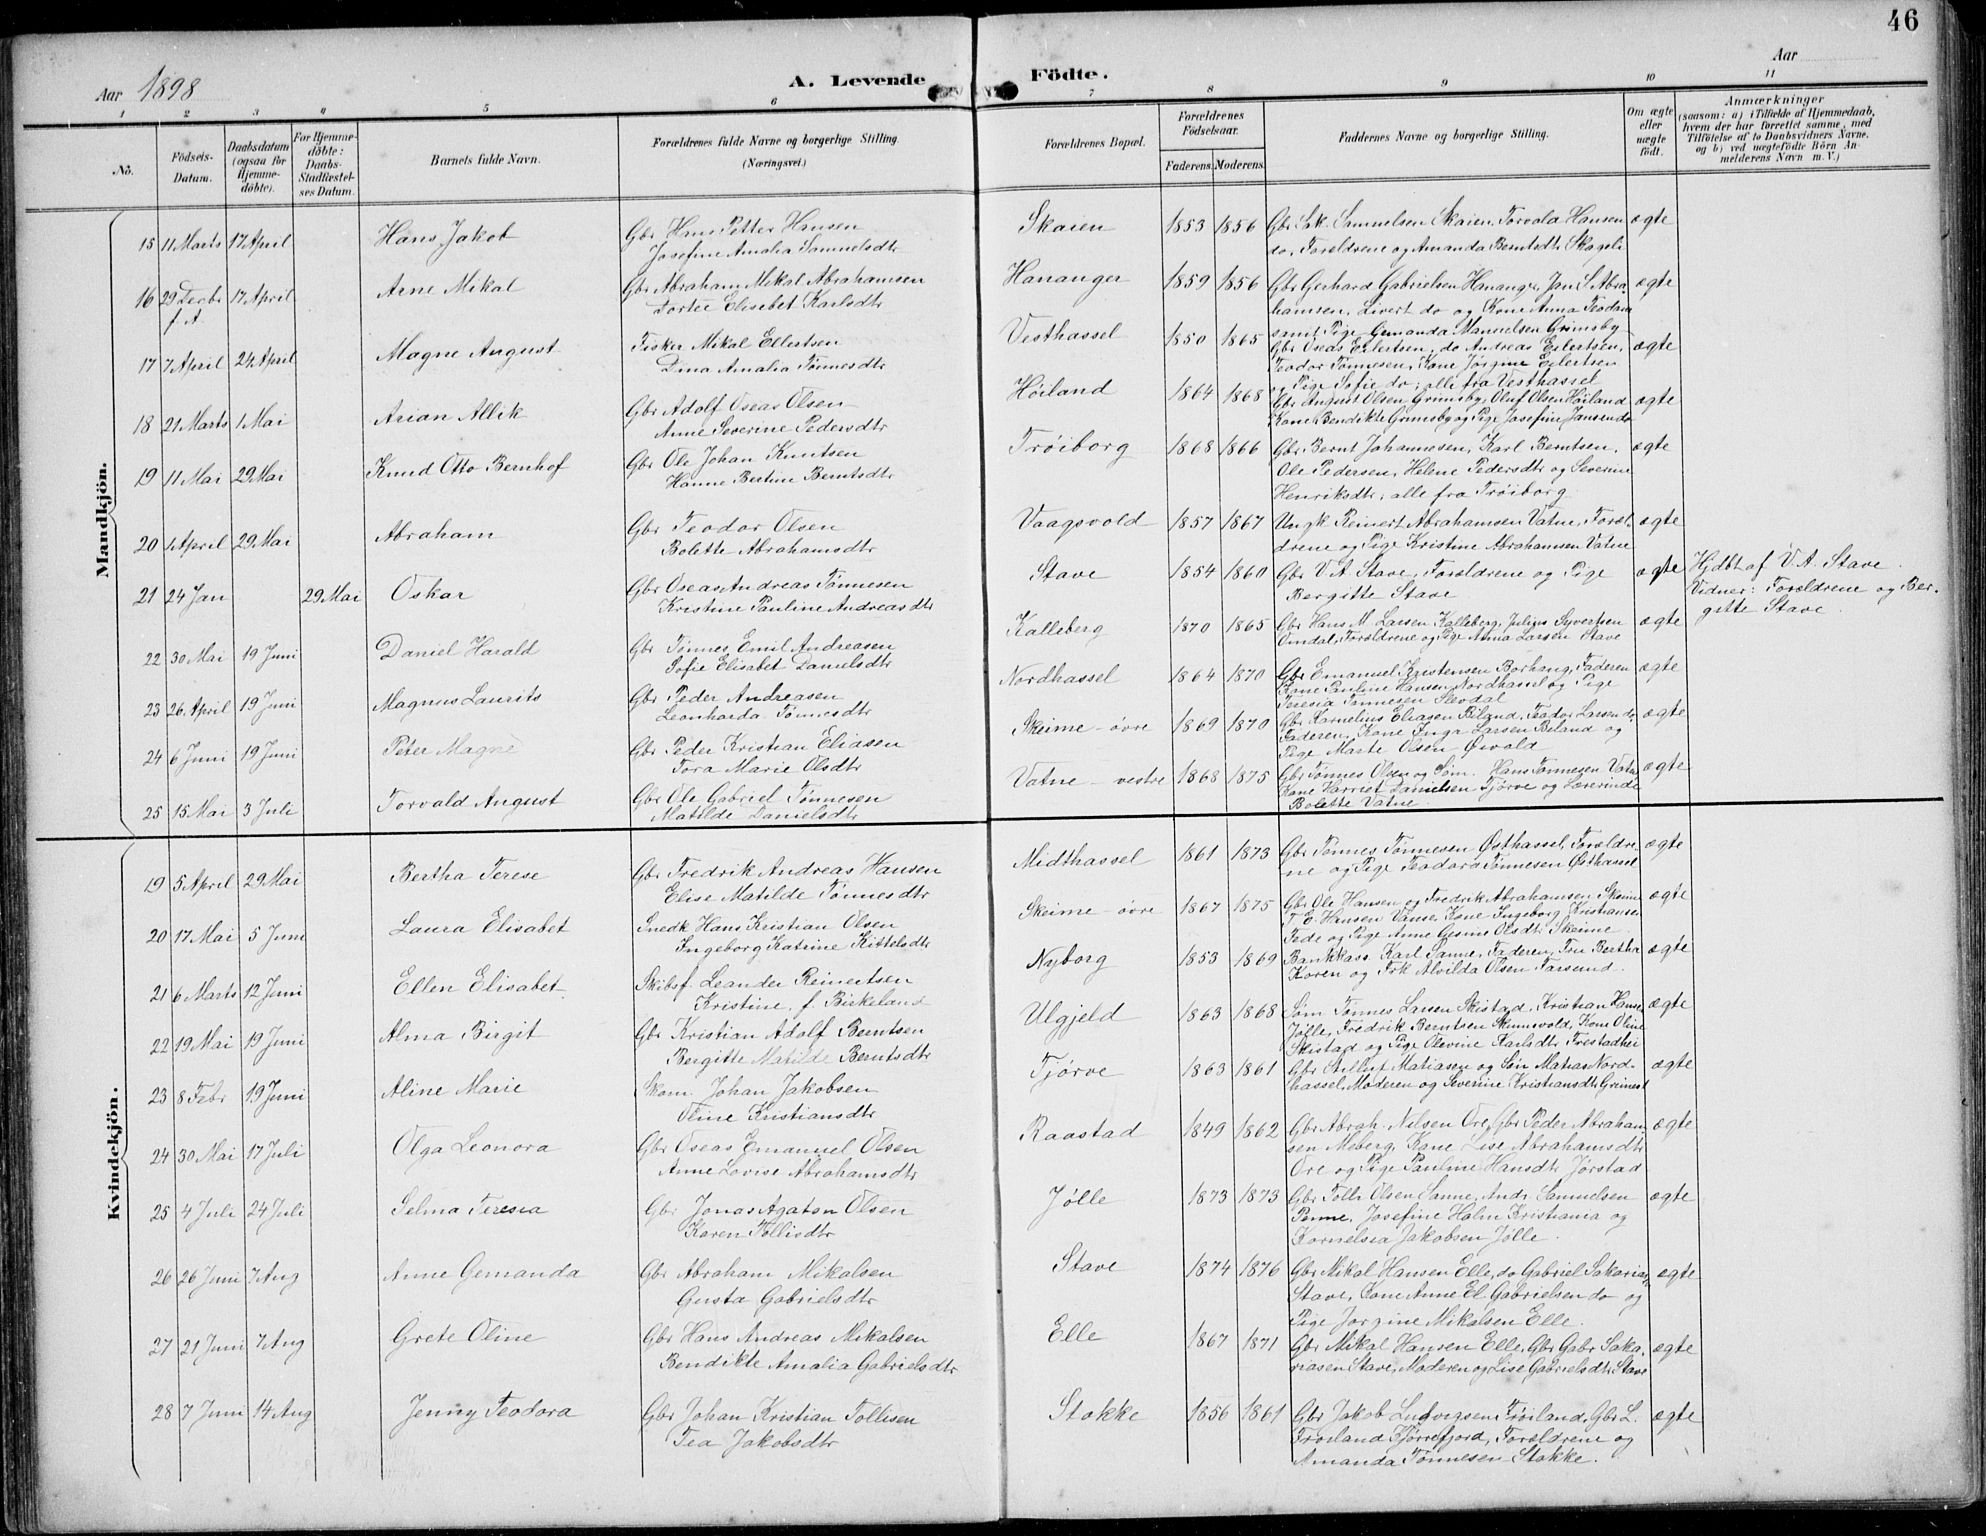 46
Aar 1898
A. Levende
Födte.
Aar
1 2 3 4 5 6 7 8 9 10 11
No.
Födsels-
Datum.
Daabsdatum
(ogsaa for
Hjemme-
döbte).
For Hjemme-
döbte:
Daabs-
Stadfæstel-
ses Datum.
Barnets fulde Navn.
Forældrenes fulde Navne og borgerlige Stilling
(Næringsvei.)
Forældrenes Bopæl.
Forældrenes
Födselsaar.
Faderens. Moderens.
Faddernes Navne og borgerlige Stilling.
Om ægte
eller
uægte
födt.
Anmærkninger
(saasom: a) i Tilfælde af Hjemmedaab,
hvem der har forrettet samme, med
Tilföielse af to Daabsvidners Navne.
og b) ved uægtefödte Börn An-
melderens Navn m. V.)
Mandkjön.
15 11 Marts 17 April Hans Jakob Gbr Hans Petter Hansen Skaien 1853 1856 Gbr Sak. Samuelsen Skaien, Torvald Hansen ægte
Josefine Amalia Samuelsdtr do, Foreldrene og Amanda Berntsdtr Skagen
16 29 Decbr 17 April Arne Mikal Gbr Abraham Mikal Abrahamsen Hananger 1859 1856 Gbr Gerhard Gabrielsen Hananger, Jan S. Abra- ægte
f. A. Dortee Elisebet Karlsdtr hansen, Livert do og Kone Anna Teodora
samt Pige Gemanda Manuelsen Grimsby
17 7 April 24 April Magne August Fisker Mikal Ellertsen Vesthassel 1850 1865 Gbr Oseas Eilertsen, do Andreas Eilertsen, ægte
Dina Amalia Tønnesdtr Teodor Tønnesen, Kone Jørgine Eilertsen
og Pige Sofie do, alle fra Vesthassel
18 21 Marts 1 Mai Arian Allik Gbr Adolf Oseas Olsen Høiland 1864 1868 Gbr August Olsen Grimsby, Oluf Olsen Høiland ægte
Anne Severine Pedersdtr Kone Bendikte Grimsby og Pige Josefine Jansen do
19 11 Mai 29 Mai Knud Otto Bernhof Gbr Ole Johan Knutsen Trøiborg 1868 1866 Gbr Bernt Johannesen, Karl Berntsen, ægte
Hanne Bertine Berntsdtr Ole Pedersen, Helene Pedersdtr og Severine
Henriksdtr, alle fra Trøiborg
20 1 April 29 Mai Abraham Gbr Teodor Olsen Vaagsvold 1857 1867 Ungk Reinert Abrahamsen Vatne, Foræl- ægte
Bolette Abrahamsdtr drene og Pige Kristine Abrahamsen Vatne
21 24 Jan 29 Mai Oskar Gbr Oseas Andreas Tønnesen Stave 1854 1860 Gbr V. A. Stave, Forældrene og Pige ægte Hjdbt af V. A. Stave.
Kristine Pauline Andreasdtr Bergitte Stave Vidner: Forældrene og Ber-
gitte Stave.
22 30 Mai 19 Juni Daniel Harald Gbr Tønnes Emil Andreasen Kalleberg 1870 1865 Gbr Hans M. Larsen Kalleberg, Julius Syvertsen ægte
Sofie Elisabet Danielsdtr Omdal, Forældrene og Pige Anna Larsen Stave
23 26. April 19 Juni Magnus Laurits Gbr Peder Andreasen Nordhassel 1864 1870 Gbr Emanuel Kristensen Borhaug, Faderen ægte
Leonharda Tønnesdtr Kone Pauline Hansen Nordhassel og Pige
Teresia Tønnesen Slevdal
24 6 Juni 19 Juni Peter Magne Gbr Peder Kristian Eliasen Skeime - øvre 1869 1870 Gbr Karnelius Eliasen Biland, Teodor Larsen do, ægte
Tora Marie Olsdtr Faderen, Kone Inga Larsen Beland og
Pige Marte Olsen Øivold
25 15 Mai 3 Juli Torvald August Gbr Ole Gabriel Tønnesen Vatne - vestre 1868 1875 Gbr Tønnes Olsen og Søn. Hans Tønnesen Vatne ægte
Matilde Danielsdtr Kone Harriet Danielsen Tjørve og Lærerinde
Bolette Vatne
Kvindekjön.
19 5 April 29 Mai Bertha Terese Gbr Fredrik Andreas Hansen Midthassel 1861 1873 Gbr Tønnes Tønnesen Østhassel, Forældre- ægte
Elise Matilde Tønnesdtr ne og Pige Teodora Tønnesen Østhassel
20 17 Mai 5 Juni Laura Elisabet Snedk Hans Kristian Olsen Skeime - øvre 1867 1875 Gbr Ole Hansen og Fredrik Abrahamsen Skeime ægte
Ingeborg Katrine Kittelsdtr T. E. Hansen Vanse, Kone Ingeborg Kristiansen
Fede og Pige Anne Gesine Olsdtr Skeime.
21 6 Marts 12 Juni Ellen Elisabet Skibsf Leander Reinertsen Nyborg 1853 1869 Bankkass. Karl Sanne, Faderen, Fru Bertha ægte
Kristine, f. Birkeland Koren og Frk Alvilda Olsen Farsund.
22 19 Mai 19 Juni Alma Birgit Gbr Kristian Adolf Berntsen Ulgjeld 1863 1868 Søm Tønnes Larsen Skistad, Kristian Hansen ægte
Bergitte Matilde Berntsdtr Jølle, Fredrik Berntsen Skunsvold, Kone Oline
Skistad og Pige Olevine Karlsdtr Trestadhei
23 8 Febr 19 Juni Aline Marie Skom. Johan Jakobsen Tjørve 1863 1861 Gbr Stilluf Matiasen og Søn Matias Nord- ægte
Oline Kristiansdtr hassel, Moderen og Severine Kristiansdtr Grimest
24 30 Mai 17 Juli Olga Leonora Gbr Oseas Emanuel Olsen Raastad 1849 1862 Gbr Abrah. Nilsen Ore, Gbr Peder Abraham- ægte
Anne Lovise Abrahamsdtr sen Moberg, Kone Lise Abrahamsdtr
Ore og Pige Pauline Hansdtr Jørstad
25 4 Juli 24 Juli Selma Teresia Gbr Jonas Agaton Olsen Jølle 1873 1873 Gbr Tolli Olsen Sanne, Andr Samuelsen ægte
Karen Tollisdtr Penne, Josefine Holm Kristiania og
Kornelsia Jakobsen Jølle.
26 26 Juni 7 Aug Anne Gemanda Gbr Abraham Mikalsen Stave 1874 1876 Gbr Mikal Hansen Elle, do Gabriel Sakarias. ægte
Gusta Gabrielsdtr Stave, Kone Anne El. Gabrielsen do og
Pige Jørgine Mikalsen Elle.
27 21 Juni 7 Aug Grete Oline Gbr Hans Andreas Mikalsen Elle 1867 1871 Gbr Mikal Hansen Elle, Gbr Gabr Saka- ægte
Bendikte Amalia Gabrielsdtr riasen Stave, Moderen og Lise Gabrielsdtr Stave
28 7 Juni 14 Aug Jenny Teodora Gbr Johan Kristian Tollisen Stokke 1856 1861 Gbr Jakob Ludvigsen Frøiland, Gbr L. ægte
Tea Jakobsdtr Frøiland Kjørrefjord, Forældrene og
Amanda Tønnesen Stokke.